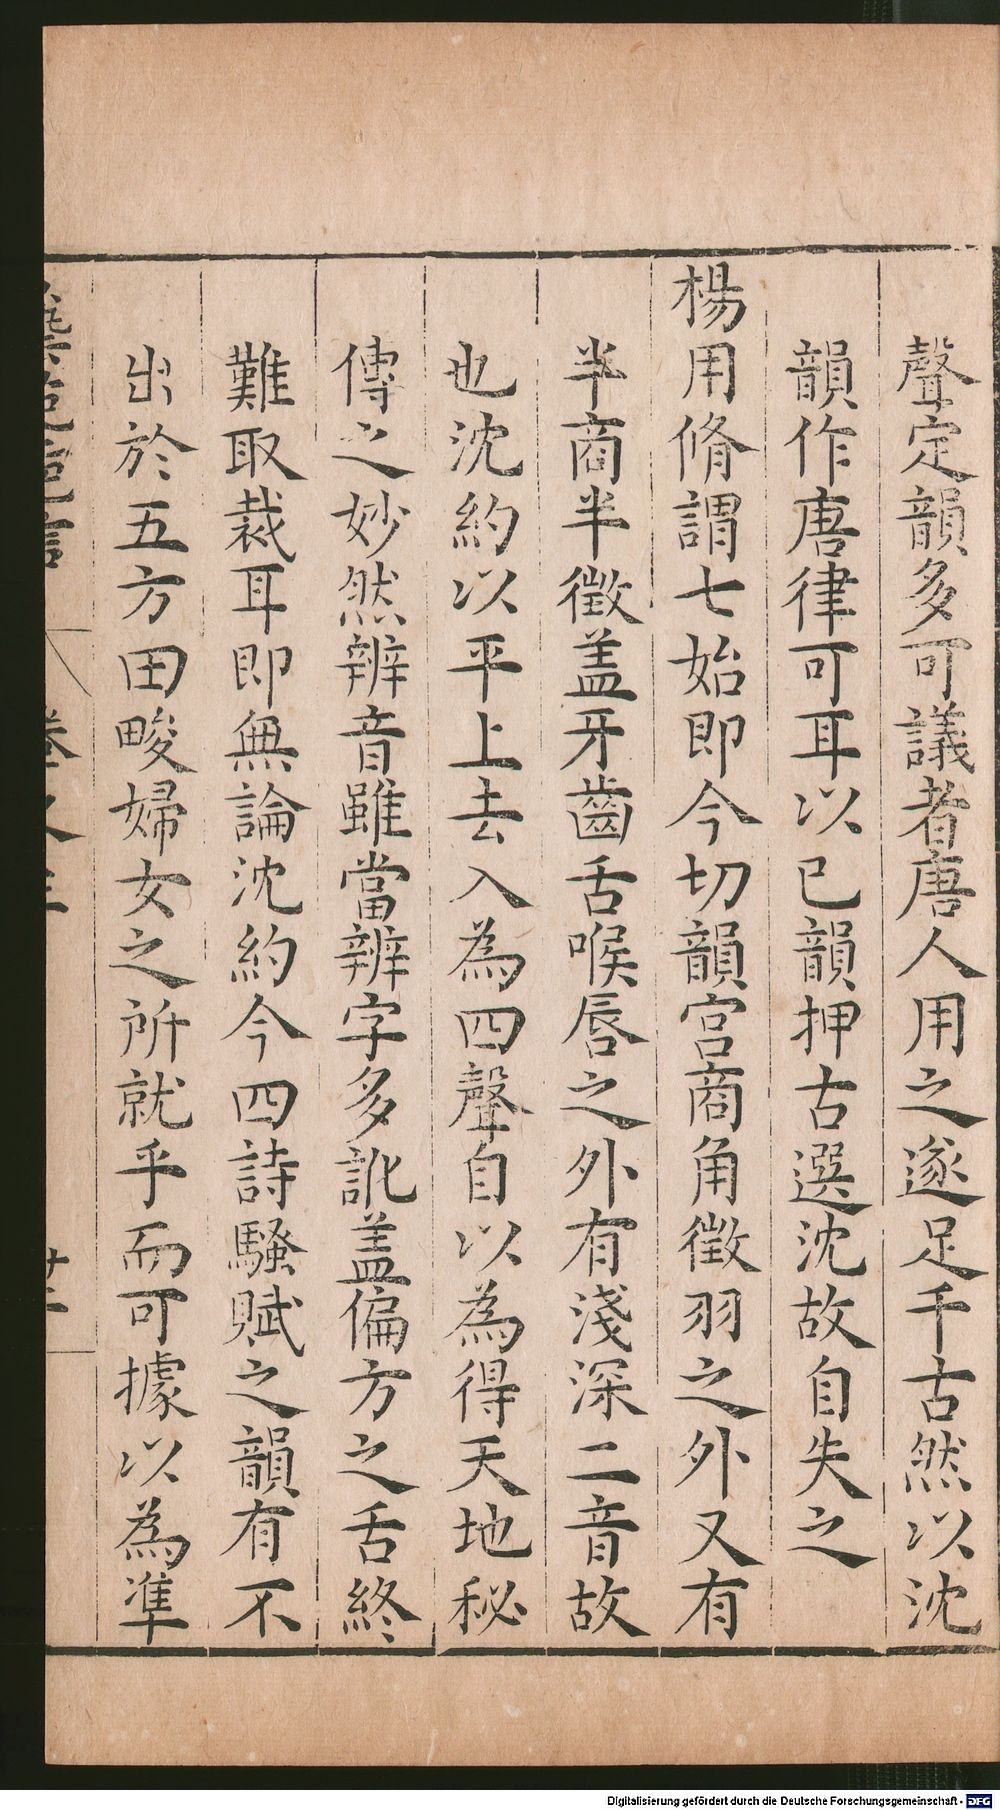 聲定韻多可議者唐人用之遂足千古然以沈
韻作唐律可耳以已韻押古選沈故自失之
楊用脩謂七始即今切韻宮商角徵羽之外又有
半商半徵盖牙齒舌喉唇之外有淺深二音故
也沈約以平上去入為四聲自以為得天地秘
傳之妙然辨音雖當辨字多訛盖偏方之舌終
難取裁耳即無論沈約今四詩騷賦之韻有不
出於五方田畯婦女之所就乎而可據以為準
Digitalisierung gefördert durch die Deutsche Forschungsgemeinschaft - DFG